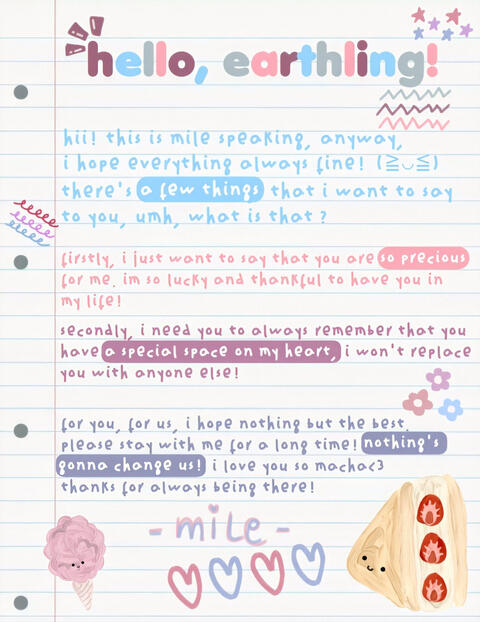 hello, earthling!
hii! this is mile speaking, anyway,
i hope everything always fine! (≧◡≦)
there's a few things that i want to say
to you, umh, what is that ?
firstly, i just want to say that you are so precious
for me. im so lucky and thankful to have you in
my life!
secondly, i need you to always remember that you
have a special space on my heart, i won't replace
you with anyone else!
for you, for us, i hope nothing but the best.
please stay with me for a long time! nothing's
gonna change us! i love you so macha<3
thanks for always being there!
- mile -